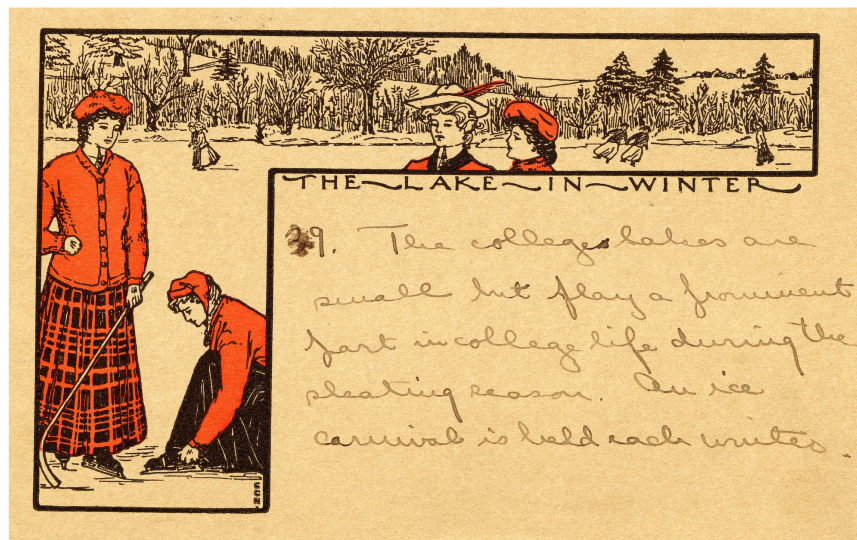 THE LAKE IN WINTER
29. The college lakes are
small but play a prominent
part in college life during the
skating season. An ice
carnival is held each winter.